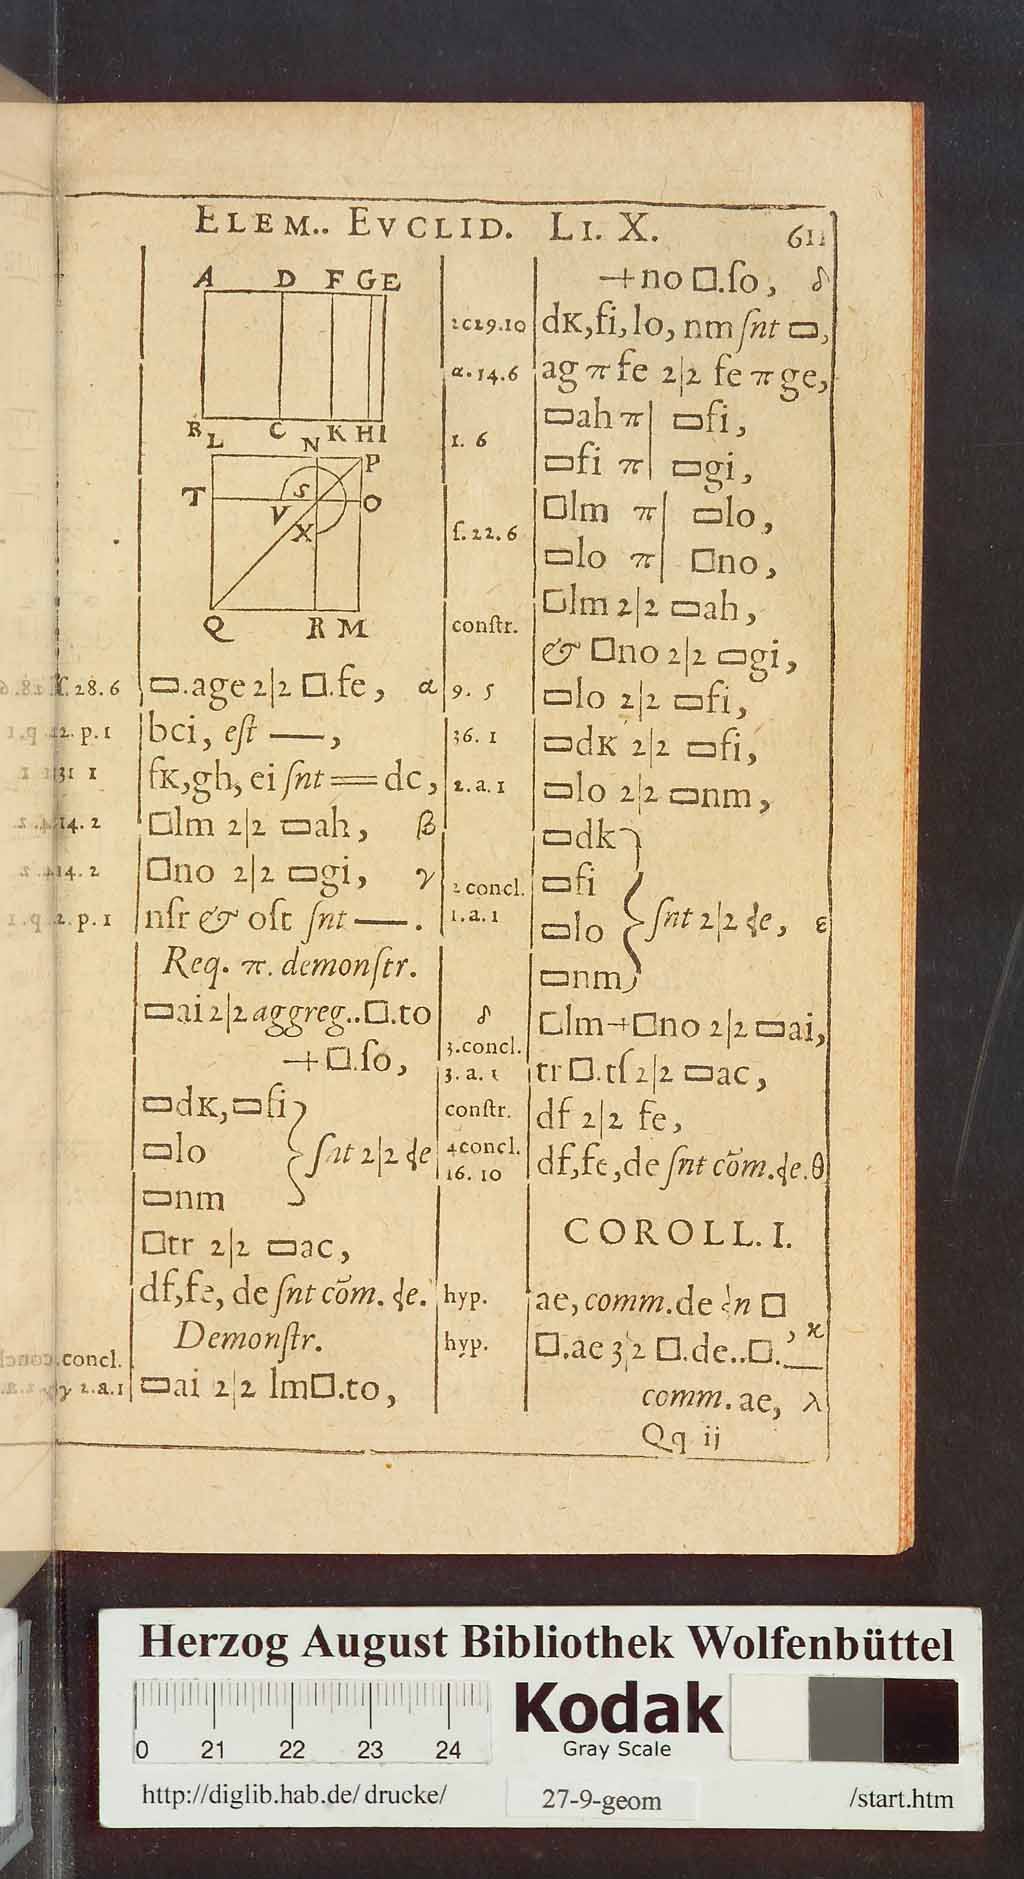 ELEM.. EVCLID. LI. X. 611
A D F G E
B L C N K H I
P
T S O
V
X
Q R M
ſ. 28. 6 ▭.age 2|2 □.fe, α
12. p. 1 bci, eſt —,
31 1 fK, gh, ei ſnt = dc,
14. 2 □lm 2|2 ▭ah, β
14. 2 □no 2|2 ▭gi, γ
2. p. 1 nſr & oſt ſnt —.
Req. π. demonſtr.
▭ai 2|2 aggreg..□.to
+□.ſo,
▭dK, ▭fi
▭lo } ſnt 2|2 ɖe
▭nm
□tr 2|2 ▭ac,
df, fe, de ſnt com̄. ɖe.
Demonſtr.
concl.
γ 2.a.1 ▭ai 2|2 lm□.to,
+no □.ſo, δ
2c29.10 dK, fi, lo, nm ſnt ▭,
α. 14.6 ag π fe 2|2 fe π ge,
▭ah π | ▭fi,
1. 6
▭fi π | ▭gi,
□lm π | ▭lo,
ſ. 22. 6
▭lo π | □no,
□lm 2|2 ▭ah,
conſtr.
& □no 2|2 ▭gi,
9. 5 ▭lo 2|2 ▭fi,
36. 1 ▭dK 2|2 ▭fi,
2. a. 1 ▭lo 2|2 ▭nm,
▭dk
2 concl. ▭fi
1. a. 1 ▭lo } ſnt 2|2 ɖe, ε
▭nm
δ □lm+□no 2|2 ▭ai,
3. concl.
3. a. 1 tr □.tſ 2|2 ▭ac,
conſtr. df 2|2 fe,
4 concl.
16. 10 df, fe, de ſnt com̄. ɖe. θ
COROLL. I.
hyp. ae, comm. de ɖn □
, ϰ
hyp. □.ae 3|2 □.de..□.—
comm. ae, λ
Qq ij
Herzog August Bibliothek Wolfenbüttel
0 21 22 23 24
Kodak
Gray Scale
http://diglib.hab.de/drucke/ 27-9-geom /start.htm